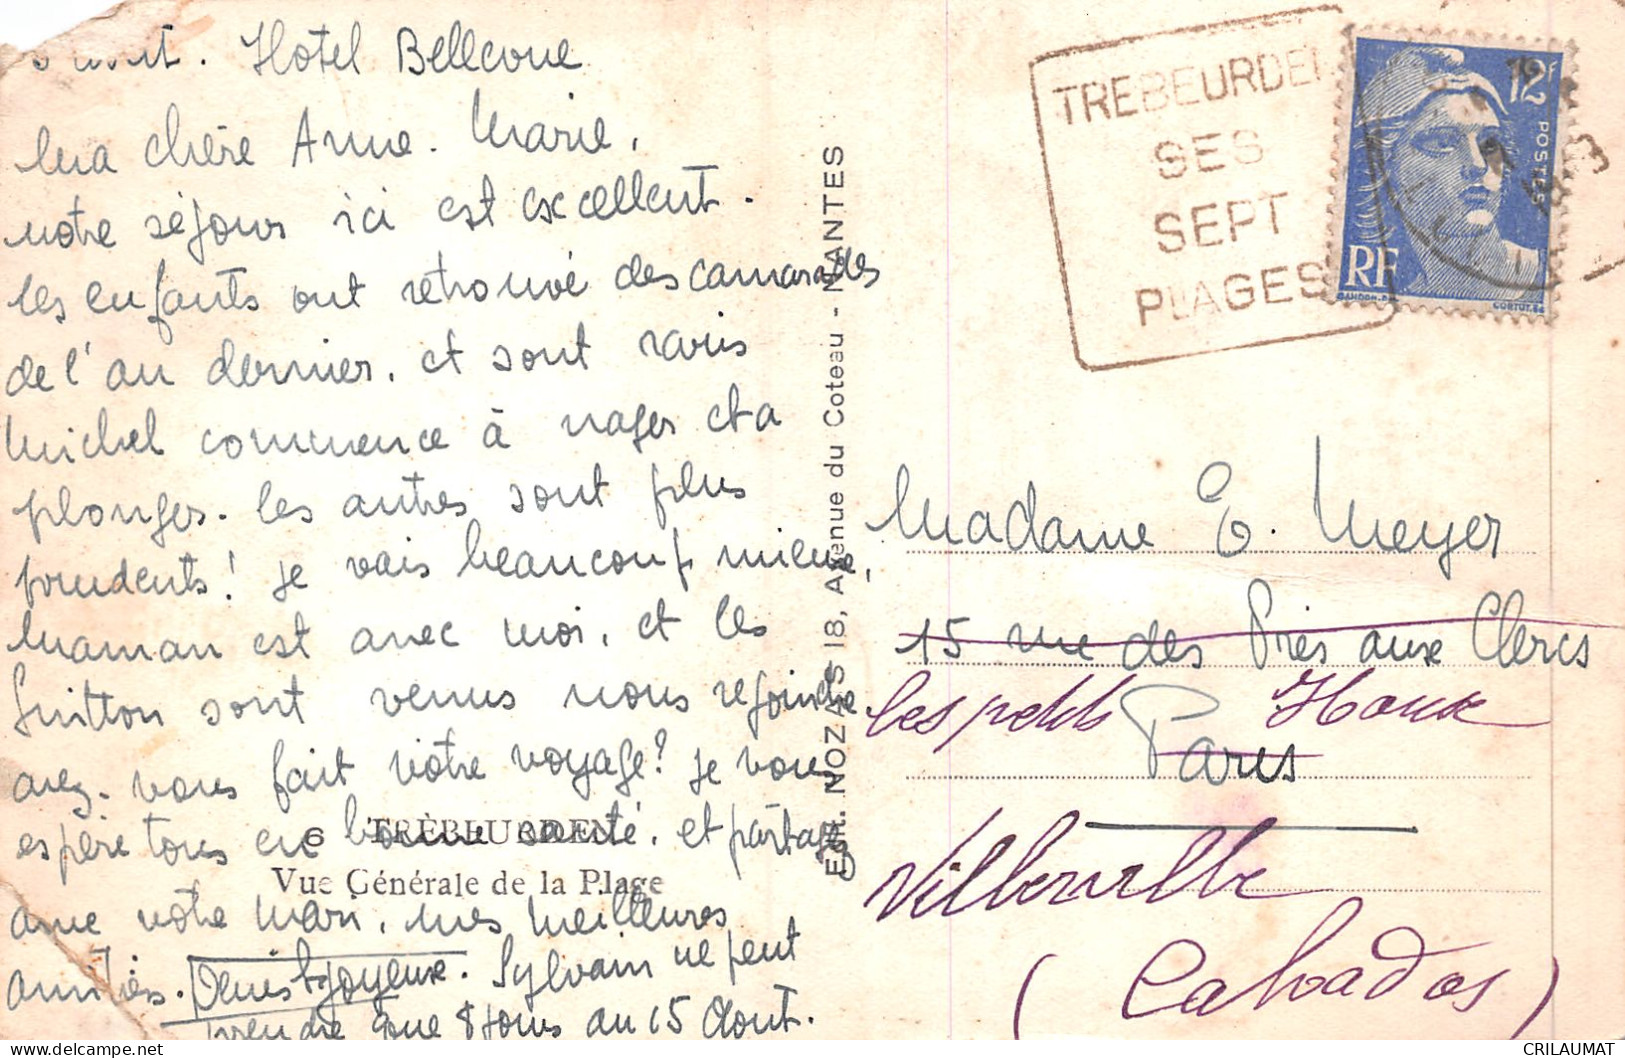 Hotel Bellevue
Ma chère Anne-Marie,
notre séjour ici est excellent.
les enfants ont retrouvé des camarades
de l'an dernier, et sont ravis
Michel commence à nager et à
plonger. les autres sont plus
prudents! je vais beaucoup mieux,
Maman est avec moi, et les
Guitton sont venus nous rejoindre
avez-vous fait votre voyage? je vous
espère tous en bonne santé, et partagez
avec votre mari, mes meilleures
amitiés. Sylvain ne peut
prendre que 8 jours au 15 Aout.
6 TRÉBEURDEN
Vue Générale de la Plage
Edit. NOZAIS 18, Avenue du Coteau - NANTES
TREBEURDEN
SES
SEPT
PLAGES
12F
POSTES
RF
GANDON.
CORTOT.
Madame E. Meyer
15 rue des Près aux Clercs
Paris
les petits
Villerville
(Calvados)
CRILAUMAT